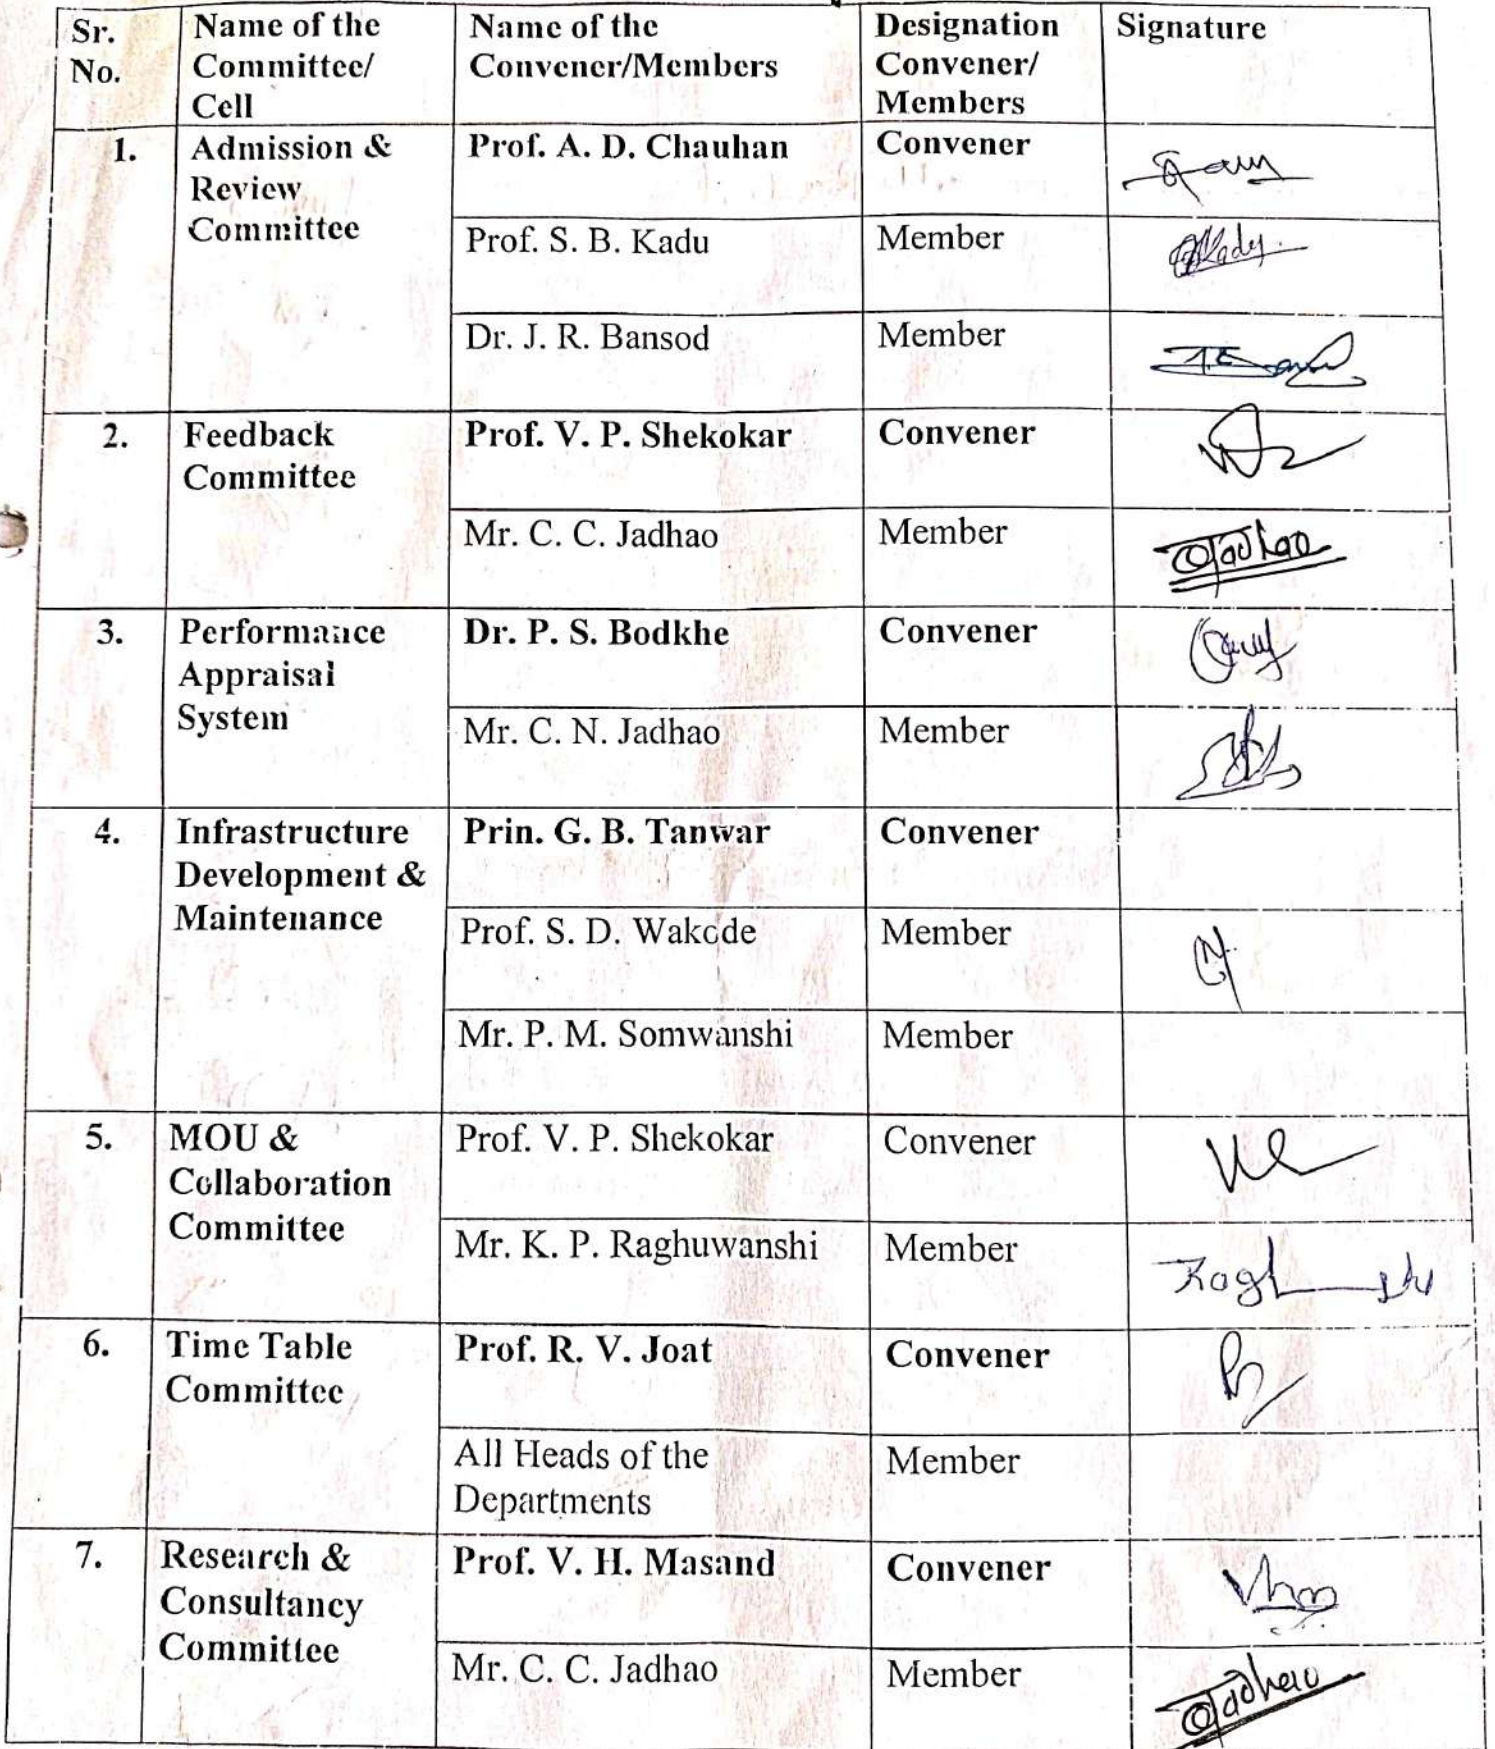 Sr. No. Name of the Committee/ Cell Name of the Convener/Members Designation Convener/ Members Signature
1. Admission & Review Committee Prof. A. D. Chauhan Convener
Prof. S. B. Kadu Member Kadu
Dr. J. R. Bansod Member
2. Feedback Committee Prof. V. P. Shekokar Convener
Mr. C. C. Jadhao Member Jadhao
3. Performance Appraisal System Dr. P. S. Bodkhe Convener
Mr. C. N. Jadhao Member
4. Infrastructure Development & Maintenance Prin. G. B. Tanwar Convener
Prof. S. D. Wakode Member
Mr. P. M. Somwanshi Member
5. MOU & Collaboration Committee Prof. V. P. Shekokar Convener
Mr. K. P. Raghuwanshi Member
6. Time Table Committee Prof. R. V. Joat Convener
All Heads of the Departments Member
7. Research & Consultancy Committee Prof. V. H. Masand Convener
Mr. C. C. Jadhao Member Jadhao